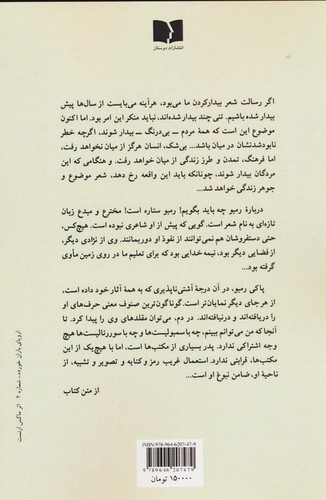 انتشارات دوستان
اگر رسالت شعر بیدارکردن ما می‌بود، هرآینه می‌بایست از سال‌ها پیش
بیدار شده باشیم. تنی چند بیدار شده‌اند، نباید منکر این امر بود. اما اکنون
موضوع این است که همهٔ مردم ــ بی‌درنگ ــ بیدار شوند، اگرچه خطر
نابودشدنشان در میان باشد... بی‌شک، انسان هرگز از میان نخواهد رفت،
اما فرهنگ، تمدن و طرز زندگی از میان خواهد رفت. و هنگامی که این
مردگان بیدار شوند، چونانکه باید این واقعه رخ دهد، شعر موضوع و
جوهر زندگی خواهد شد...
دربارهٔ رمبو چه باید بگویم! رمبو ستاره است! مخترع و مبدع زبان
تازه‌ای به نام شعر است. گویی که پیش از او شاعری نبوده است. هیچ‌کس،
حتی دستفروشان هم نمی‌توانند از نفوذ او دوربمانند. وی از نژادی دیگر،
از فضایی دیگر بود، نیمه خدایی بود که برای تعلیم ما در روی زمین مأوی
گرفته بود...
پاکی رمبو، در آن درجهٔ آشتی‌ناپذیری که به همهٔ آثار خود داده است،
از هرجای دیگر نمایان‌تر است. گوناگون‌ترین صنوف معنی حرف‌های او
را دریافته‌اند و درنیافته‌اند. در دم، می‌توان مقلدهای وی را پیدا کرد. تا
آنجا که من می‌توانم ببینم، چه با سمبولیست‌ها و چه با سوررئالیست‌ها هیچ
وجه اشتراکی ندارد. پدر بسیاری از مکتب‌ها است، اما با هیچ‌یک از این
مکتب‌ها، قرابتی ندارد. استعمال غریب رمز و کنایه و تصویر و تشبیه، از
ناحیهٔ او، ضامن نبوغ او است...
از متن کتاب
اروپای باران خورده، شماره ۲ اثر ماکس ارنست
ISBN: 978-964-6207-47-9
9 789646 207479
۱۵۰۰۰۰ تومان